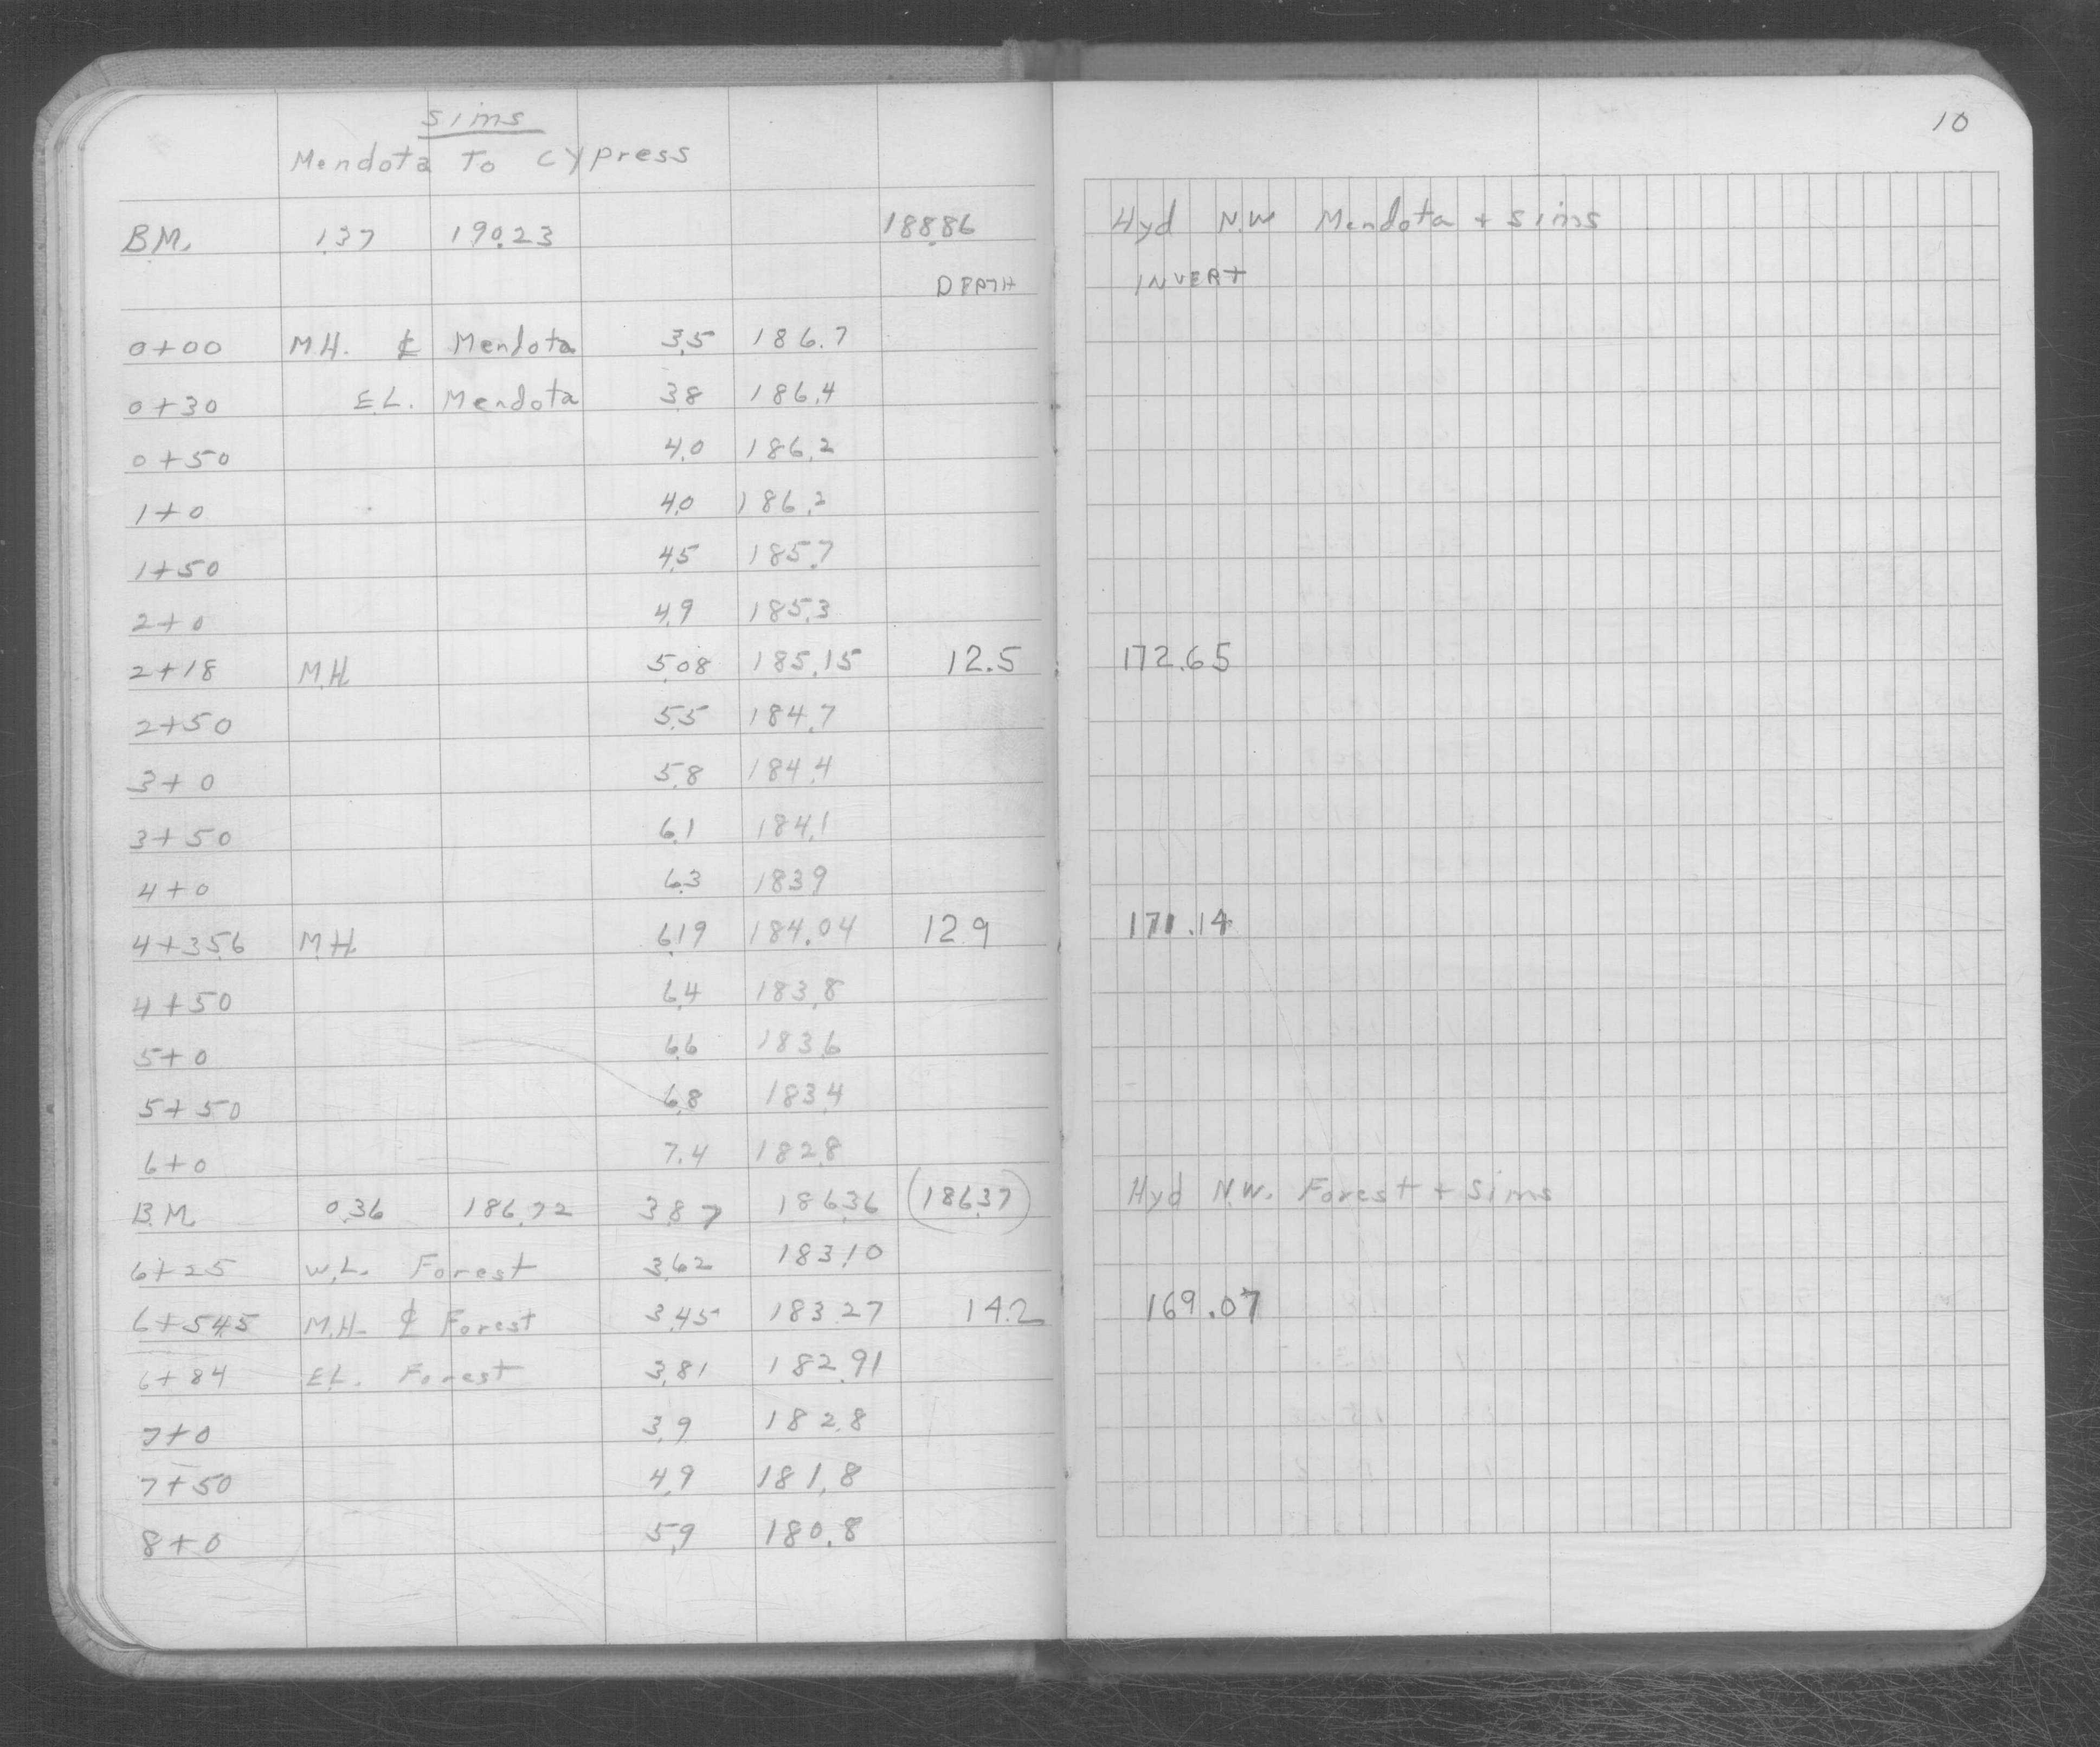 10
Sims
Mendota To Cypress
B.M. 1.37 190.23 188.86 Hyd N.W. Mendota + Sims
DEPTH INVERT
0+00 M.H. ℄ Mendota 3.5 186.7
0+30 E.L. Mendota 3.8 186.4
0+50 4.0 186.2
1+0 4.0 186.2
1+50 4.5 185.7
2+0 4.9 185.3
2+18 M.H. 5.08 185.15 12.5 172.65
2+50 5.5 184.7
3+0 5.8 184.4
3+50 6.1 184.1
4+0 6.3 183.9
4+35.6 M.H. 6.19 184.04 12.9 171.14
4+50 6.4 183.8
5+0 6.6 183.6
5+50 6.8 183.4
6+0 7.4 182.8
B.M. 0.36 186.72 3.87 186.36 (186.37) Hyd N.W. Forest + Sims
6+25 W.L. Forest 3.62 183.10
6+54.5 M.H. ℄ Forest 3.45 183.27 14.2 169.07
6+84 E.L. Forest 3.81 182.91
7+0 3.9 182.8
7+50 4.9 181.8
8+0 5.9 180.8